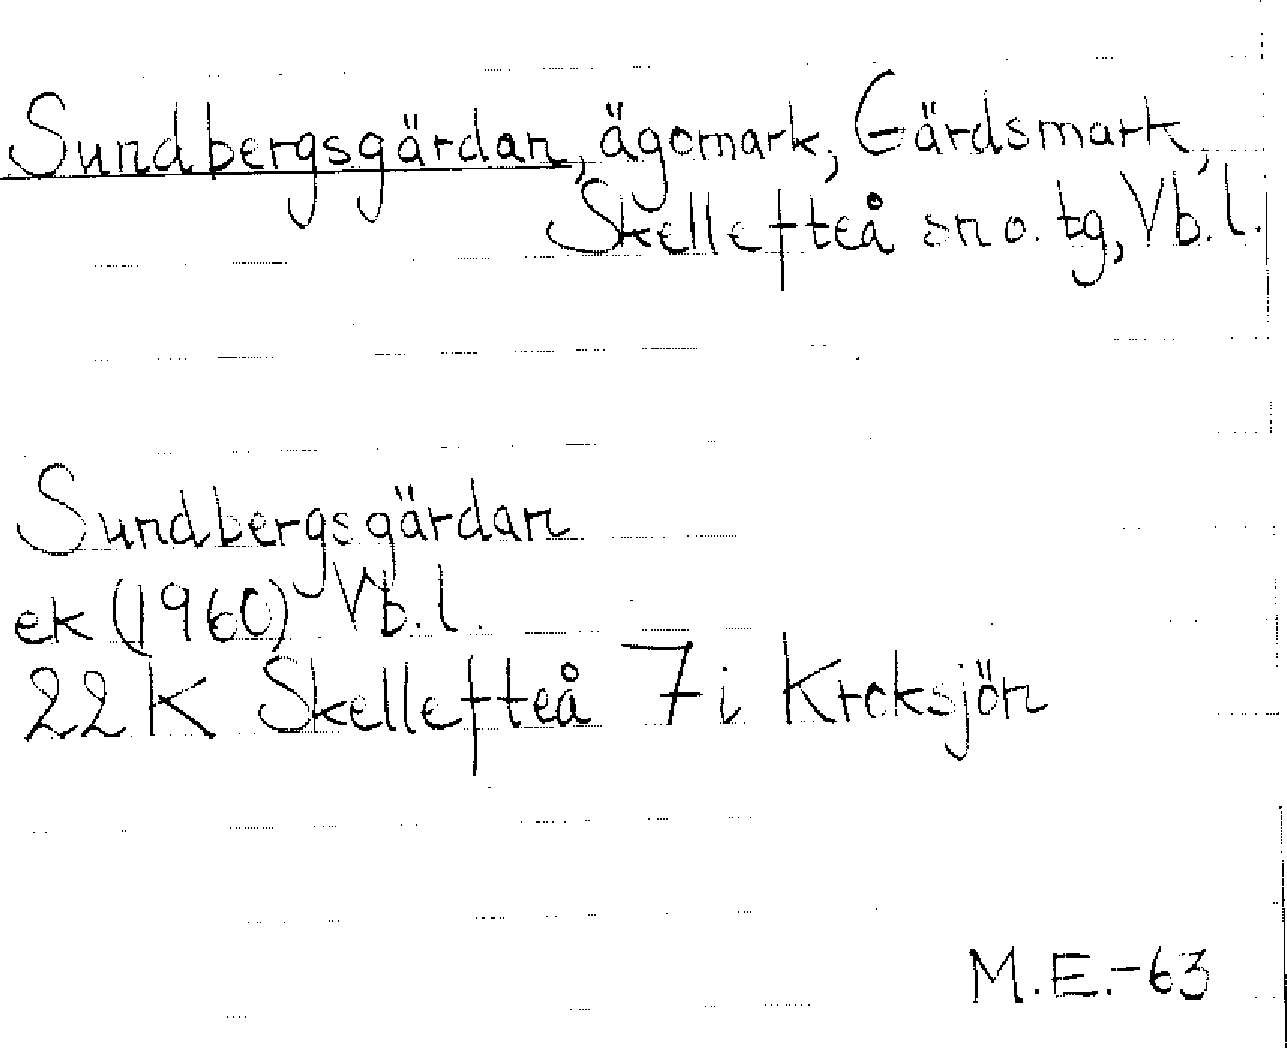 Sundbergsgärdan, ägomark, Gärdsmark,
Skellefteå sn o. tg, Vb.l.
Sundbergsgärdan
ek (1960) Vb.l.
22 K Skellefteå 7 i Kroksjön
M.E.-63